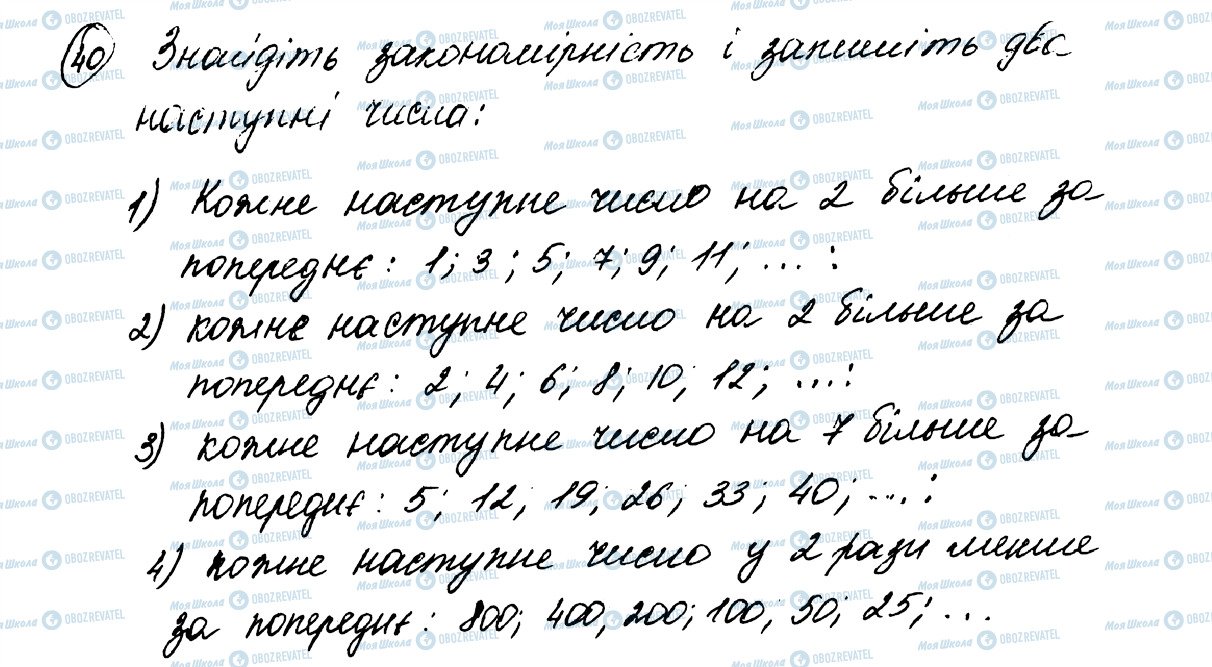 40 Знайдіть закономірність і запишіть два
наступні числа:
1) Кожне наступне число на 2 більше за
попереднє: 1; 3; 5; 7; 9; 11; ...:
2) кожне наступне число на 2 більше за
попереднє: 2; 4; 6; 8; 10; 12; ...:
3) кожне наступне число на 7 більше за
попереднє: 5; 12, 19; 26; 33; 40; ...:
4) кожне наступне число у 2 рази менше
за попереднє: 800; 400, 200; 100, 50; 25; ...